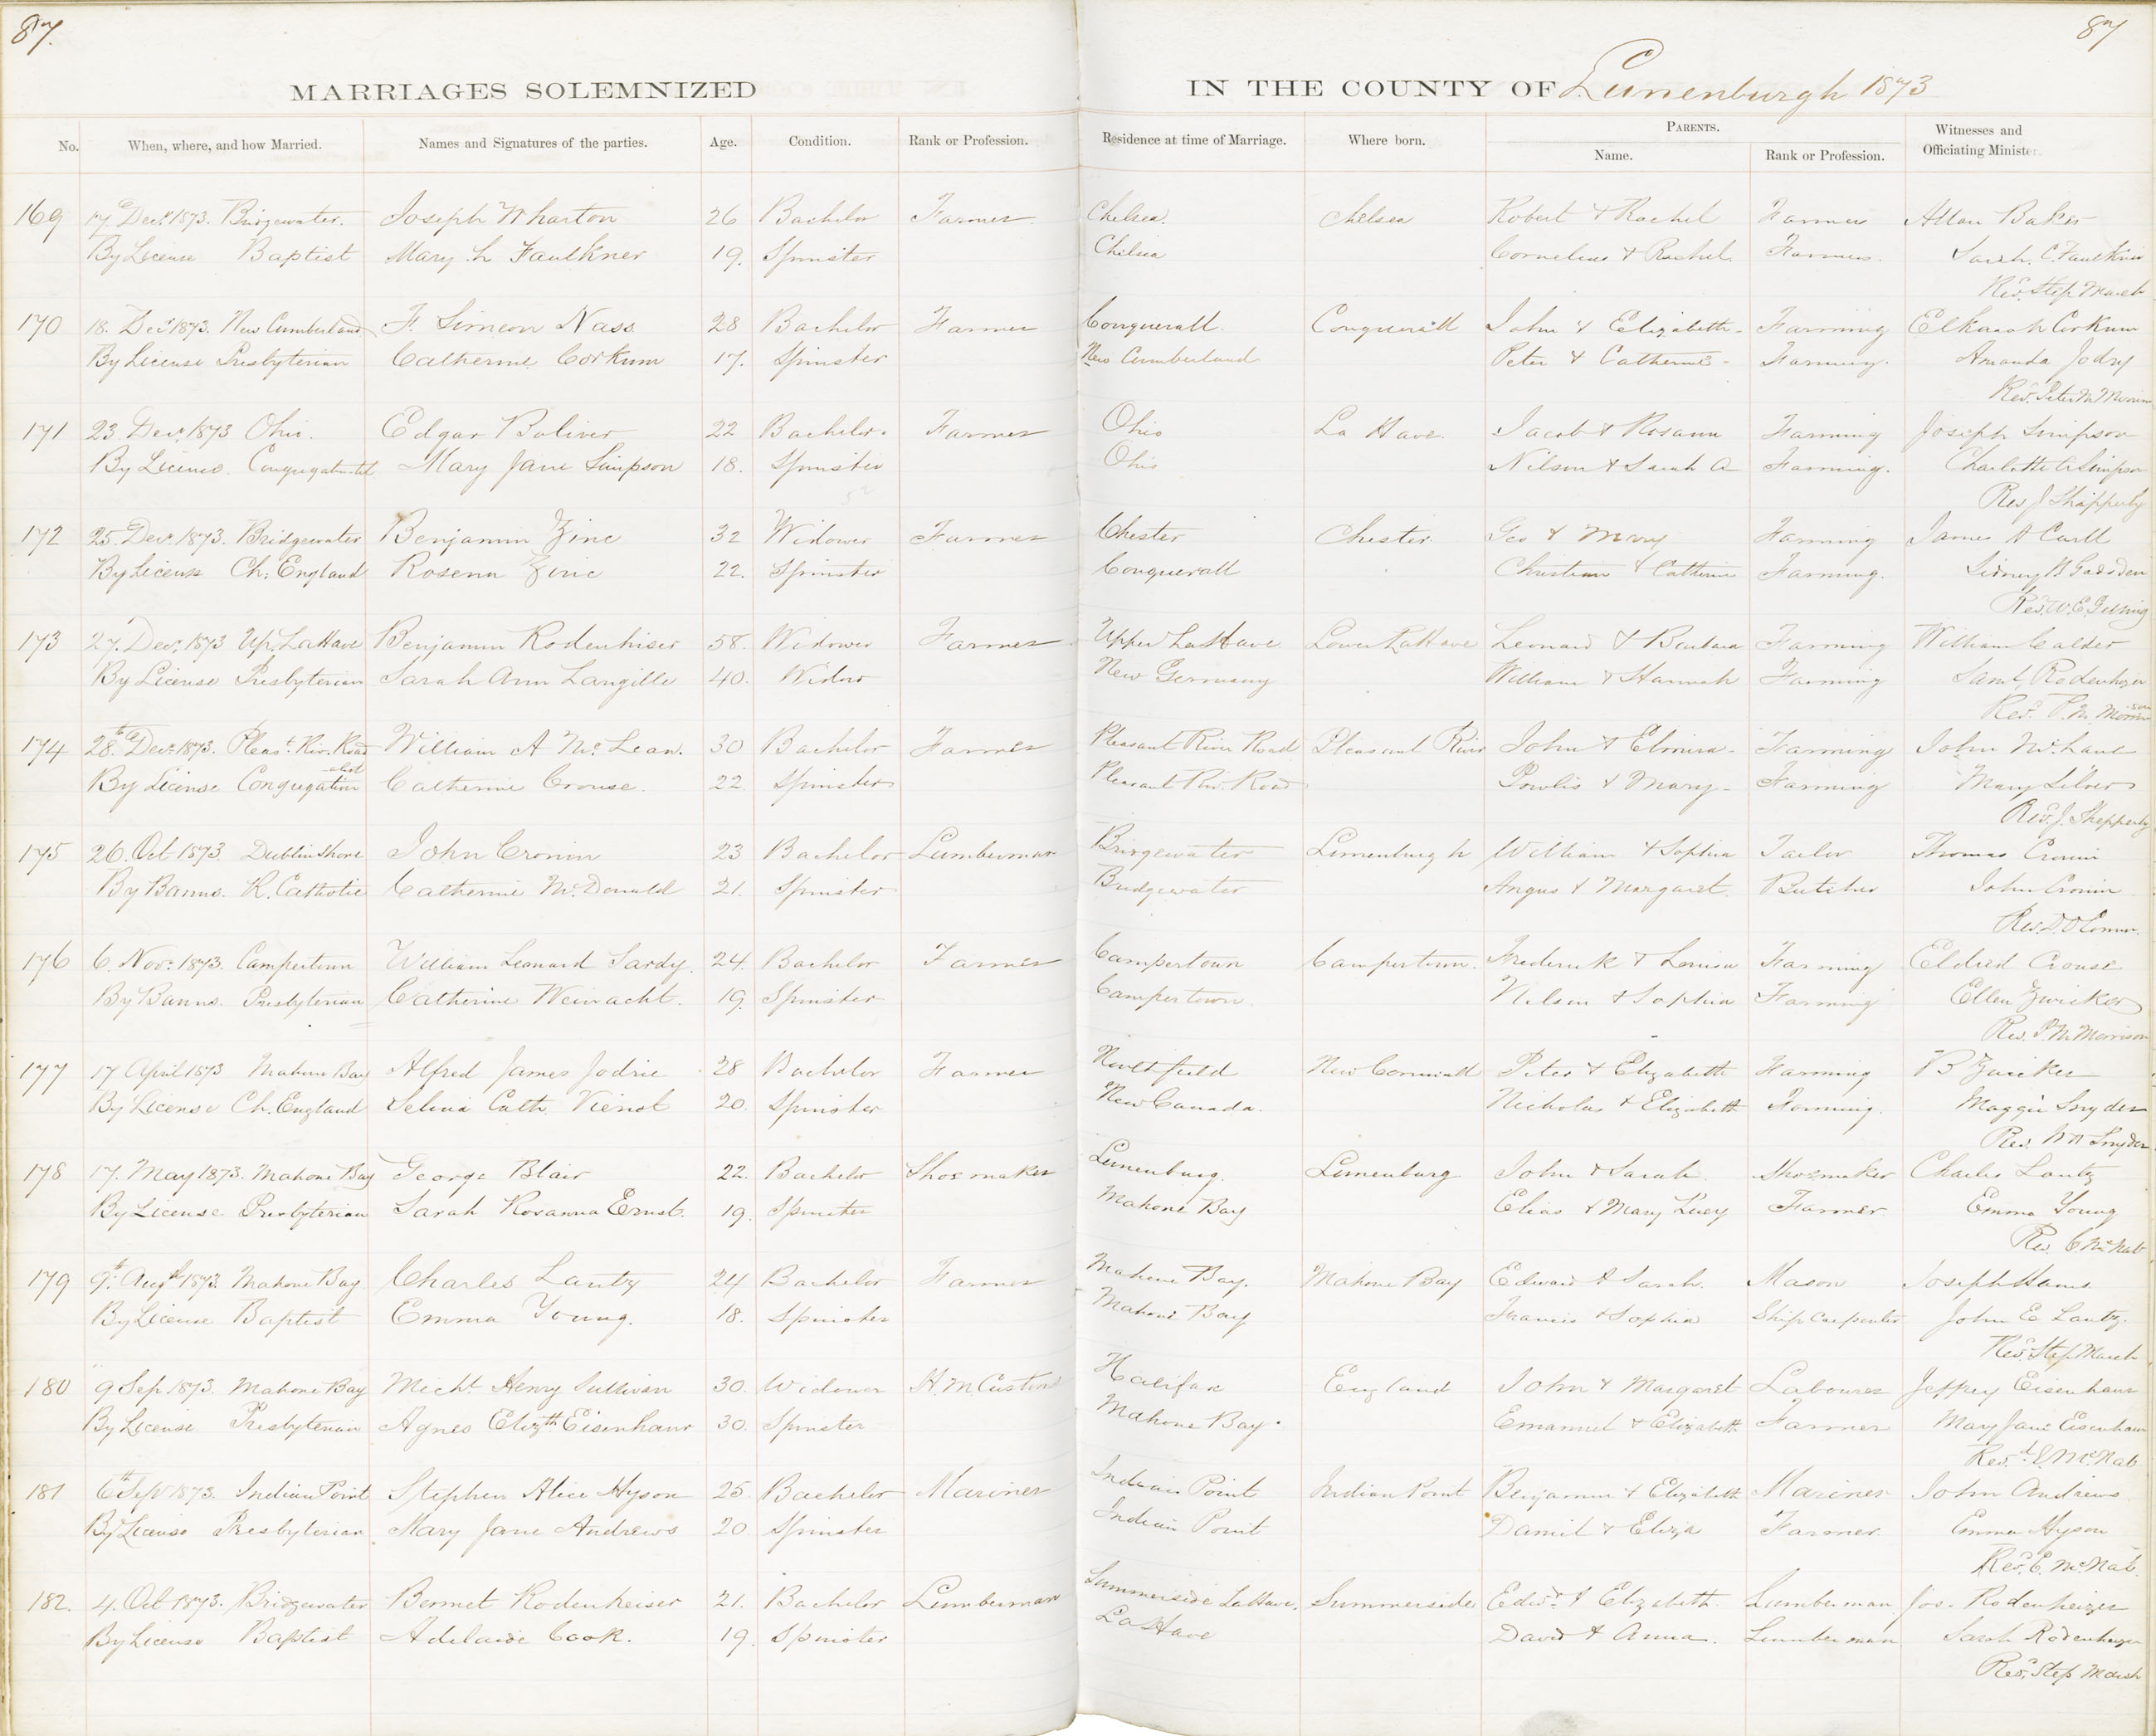 87. 87
MARRIAGES SOLEMNIZED IN THE COUNTY OF Lunenburgh 1873
No. When, where, and how Married. Names and Signatures of the parties. Age. Condition. Rank or Profession. Residence at time of Marriage. Where born. PARENTS. Name. Rank or Profession. Witnesses and Officiating Minister.
169 17 Decr 1873. Bridgewater. Joseph Wharton 26 Bachelor Farmer Chelsea. Chelsea Robert & Rachel Farmer Allan Baker
By License Baptist Mary L Faulkner 19. Spinster Chelsea Cornelius & Rachel Farmer. Sarah. C. Faulkner
Revd. Step March
170 18. Decr 1873. New Cumberland F. Simeon Nass 28 Bachelor Farmer Conquerall. Conquerall John & Elizabeth- Farming Elkanah Corkum
By License Presbyterian Catherine Corkum 17. Spinster New Cumberland Peter & Catherine- Farming. Amanda Jodry
Revd. Peter M Morrison
171 23 Decr. 1873 Ohio. Edgar Boliver 22 Bachelor. Farmer Ohio La Have. Jacob & Rosann Farming Joseph Simpson
By License. Mary Jane Simpson 18. Spinster Ohio Nilson & Sarah A Farming. Charlotte A Simpson
Rev J Shipperly
172 25. Decr. 1873. Bridgewater Benjamin Zinc 32 Widower Farmer Chester Chester. Geo & Mary Farming James A Curll
By License Ch. England Rosena Zinc 22. Spinster Conquerall Christian & Catherine Farming. Sidney B Gadsden
Revd. W. E. Gelling
173 27. Decr. 1873 Up. LaHave Benjamin Rodenhiser 58. Widower Farmer Upper LaHave Lower LaHave Leonard & Barbara Farming William Calder
By License Presbyterian Sarah Ann Langille 40. Widow New Germany William & Hannah Farming Saml Rodenhizer
Revd. P. M. Morrison
174 28.th Decr. 1873. Pleast. Riv. Road William A Mc. Lean. 30 Bachelor Farmer Pleasant River Road Pleasant River John & Elmira- Farming John Mc. Lane
By License Congregationalist Catherine Crouse. 22 Spinster Pleasant Riv. Road Powlis & Mary- Farming Mary Silver
Revd. J. Shepperly
175 26. Oct 1873 Dublin Shore John Cronin 23 Bachelor Lumberman Bridgewater Lunenburgh William & Sophia Tailor Thomas Cronin
By Banns. R. Catholic Catherine Mc. Donald 21. Spinster Bridgewater Angus & Margaret Butcher John Cronin
Revd. D OConnor.
176 6. Novr. 1873. Campertown William Leonard Sardy. 24. Bachelor Farmer Campertown Campertown. Frederick & Louisa Farming Eldred Crouse
By Banns. Presbyterian Catherine Weinacht. 19. Spinster Campertown. Nilson & Sophia Farming Ellen Zwicker
Rev. P M Morrison
177 17 April 1873 Mahone Bay Alfred James Jodrie 28 Bachelor Farmer Northfield New Cornwall Peter & Elizabeth Farming B Zwicker
By License Ch. England Selina Cath. Vienot 20. Spinster New Canada. Nicholas & Elizabeth Farming. Maggie Snyder
Rev. W H Snyder
178 17. May 1873. Mahone Bay George Blair 22. Bachelor Shoemaker Lunenburg. Lunenburg John & Sarah Shoemaker Charles Lantz
By License Presbyterian Sarah Rosanna Ernst. 19. Spinster Mahone Bay Elias & Mary Lucy Farmer Emma Young
Rev. E. McNab
179 9th. Augst 1873. Mahone Bay Charles Lantz 24 Bachelor Farmer Mahone Bay. Mahone Bay Edward & Sarah. Mason Joseph Hams
By License Baptist Emma Young. 18. Spinster Mahone Bay Francis & Sophia Ship Carpenter John E Lantz.
Revd. Step March
180 9 Sep. 1873. Mahone Bay Michl Henry Sullivan 30. Widower H. M Customs Halifax England John & Margaret Labourer Jeffrey Eisenhaur
By License Presbyterian Agnes Elizth Eisenhaur 30. Spinster Mahone Bay. Emanuel & Elizabeth Farmer Mary Jane Eisenhaur
Revd. E. McNab
181 6th Sept 1873. Indian Point Stephen Alice Hyson 25. Bachelor Mariner Indian Point Indian Point Benjamin & Elizabeth Mariner John Andrews
By License Presbyterian Mary Jane Andrews 20. Spinster Indian Point Daniel & Eliza Farmer. Emma Hyson
Revd. E. McNab.
182. 4. Oct 1873. Bridgewater Bennet Rodenheiser 21. Bachelor Lumberman Summerside LaHave. Summerside Edwd. & Elizabeth Lumberman Jos. Rodenheizer
By License Baptist Adelaide Cook. 19. Spinster LaHave David & Anna. Lumberman Sarah Rodenheizer
Revd. Step March